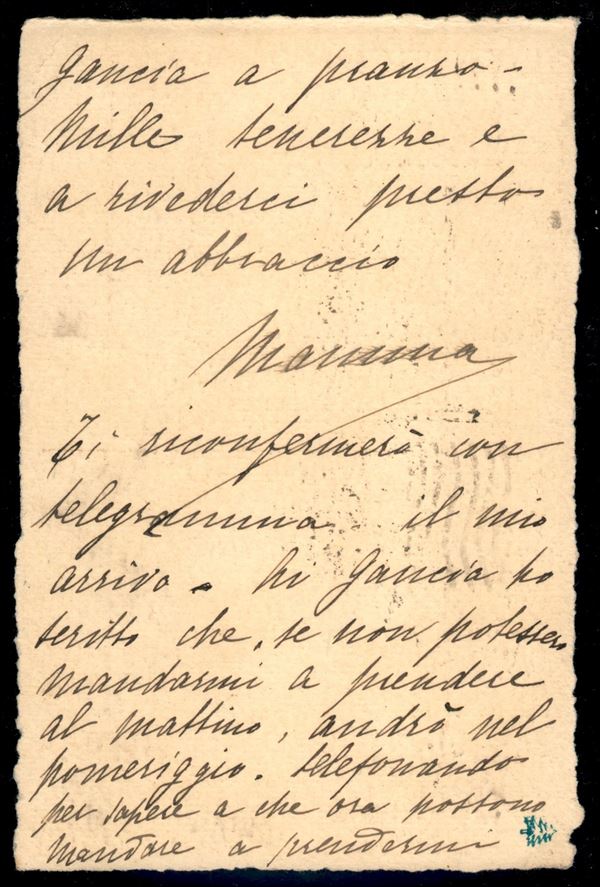 Gancia a pranzo -
Mille tenerezze e
a rivederci presto
un abbraccio
Mamma
Ti riconfermerò con
telegramma il mio
arrivo - Ai Gancia ho
scritto che, se non potessero
mandarmi a prendere
al mattino, andrò nel
pomeriggio. telefonando
per sapere a che ora possono
mandare a prendermi